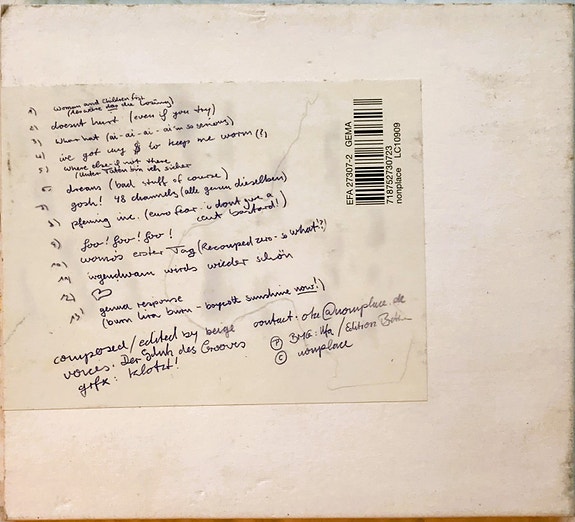 1) Woman and Children first
(das wäre das die Lösung)
2) doesnt hurt (even if you try)
3) what hat (ai-ai-ai-ai'm so serious)
4) ive got my $ to keeps me worm (!,
5) where else if not there
(Unter Toten bin ich sicher
6) dreams (bad stuff of course)
7) gosh! 48 channels (alle genau dieselben)
8) pfennig inc. (euro fear. i dont give a
cent bastard!)
9) foo! foo! foo!
10) woma's erster Tag (Recouped zero - so what!?)
11) irgendwann wirds wieder schön
12)
13) gema response
(burn lira burn - boycott sunshine now!)
composed/edited by beige
voices: Der Schuh des Grooves
grfx: klotz!
contact: oke@nonplace.de
Ⓟ BMG: Ufa / Edition
© nonplace
EFA 27307-2 GEMA
718752730723
nonplace LC10909